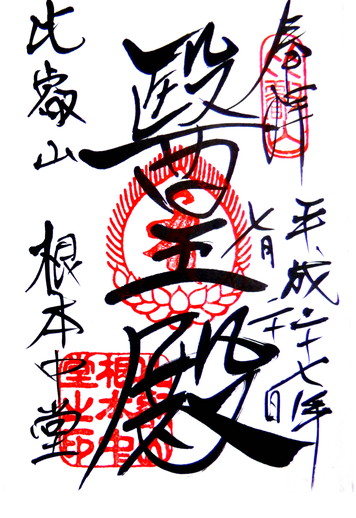 奉拝
平成二十七年
七月二十日
醫王殿
比叡山
根本中堂
根本中
堂之印